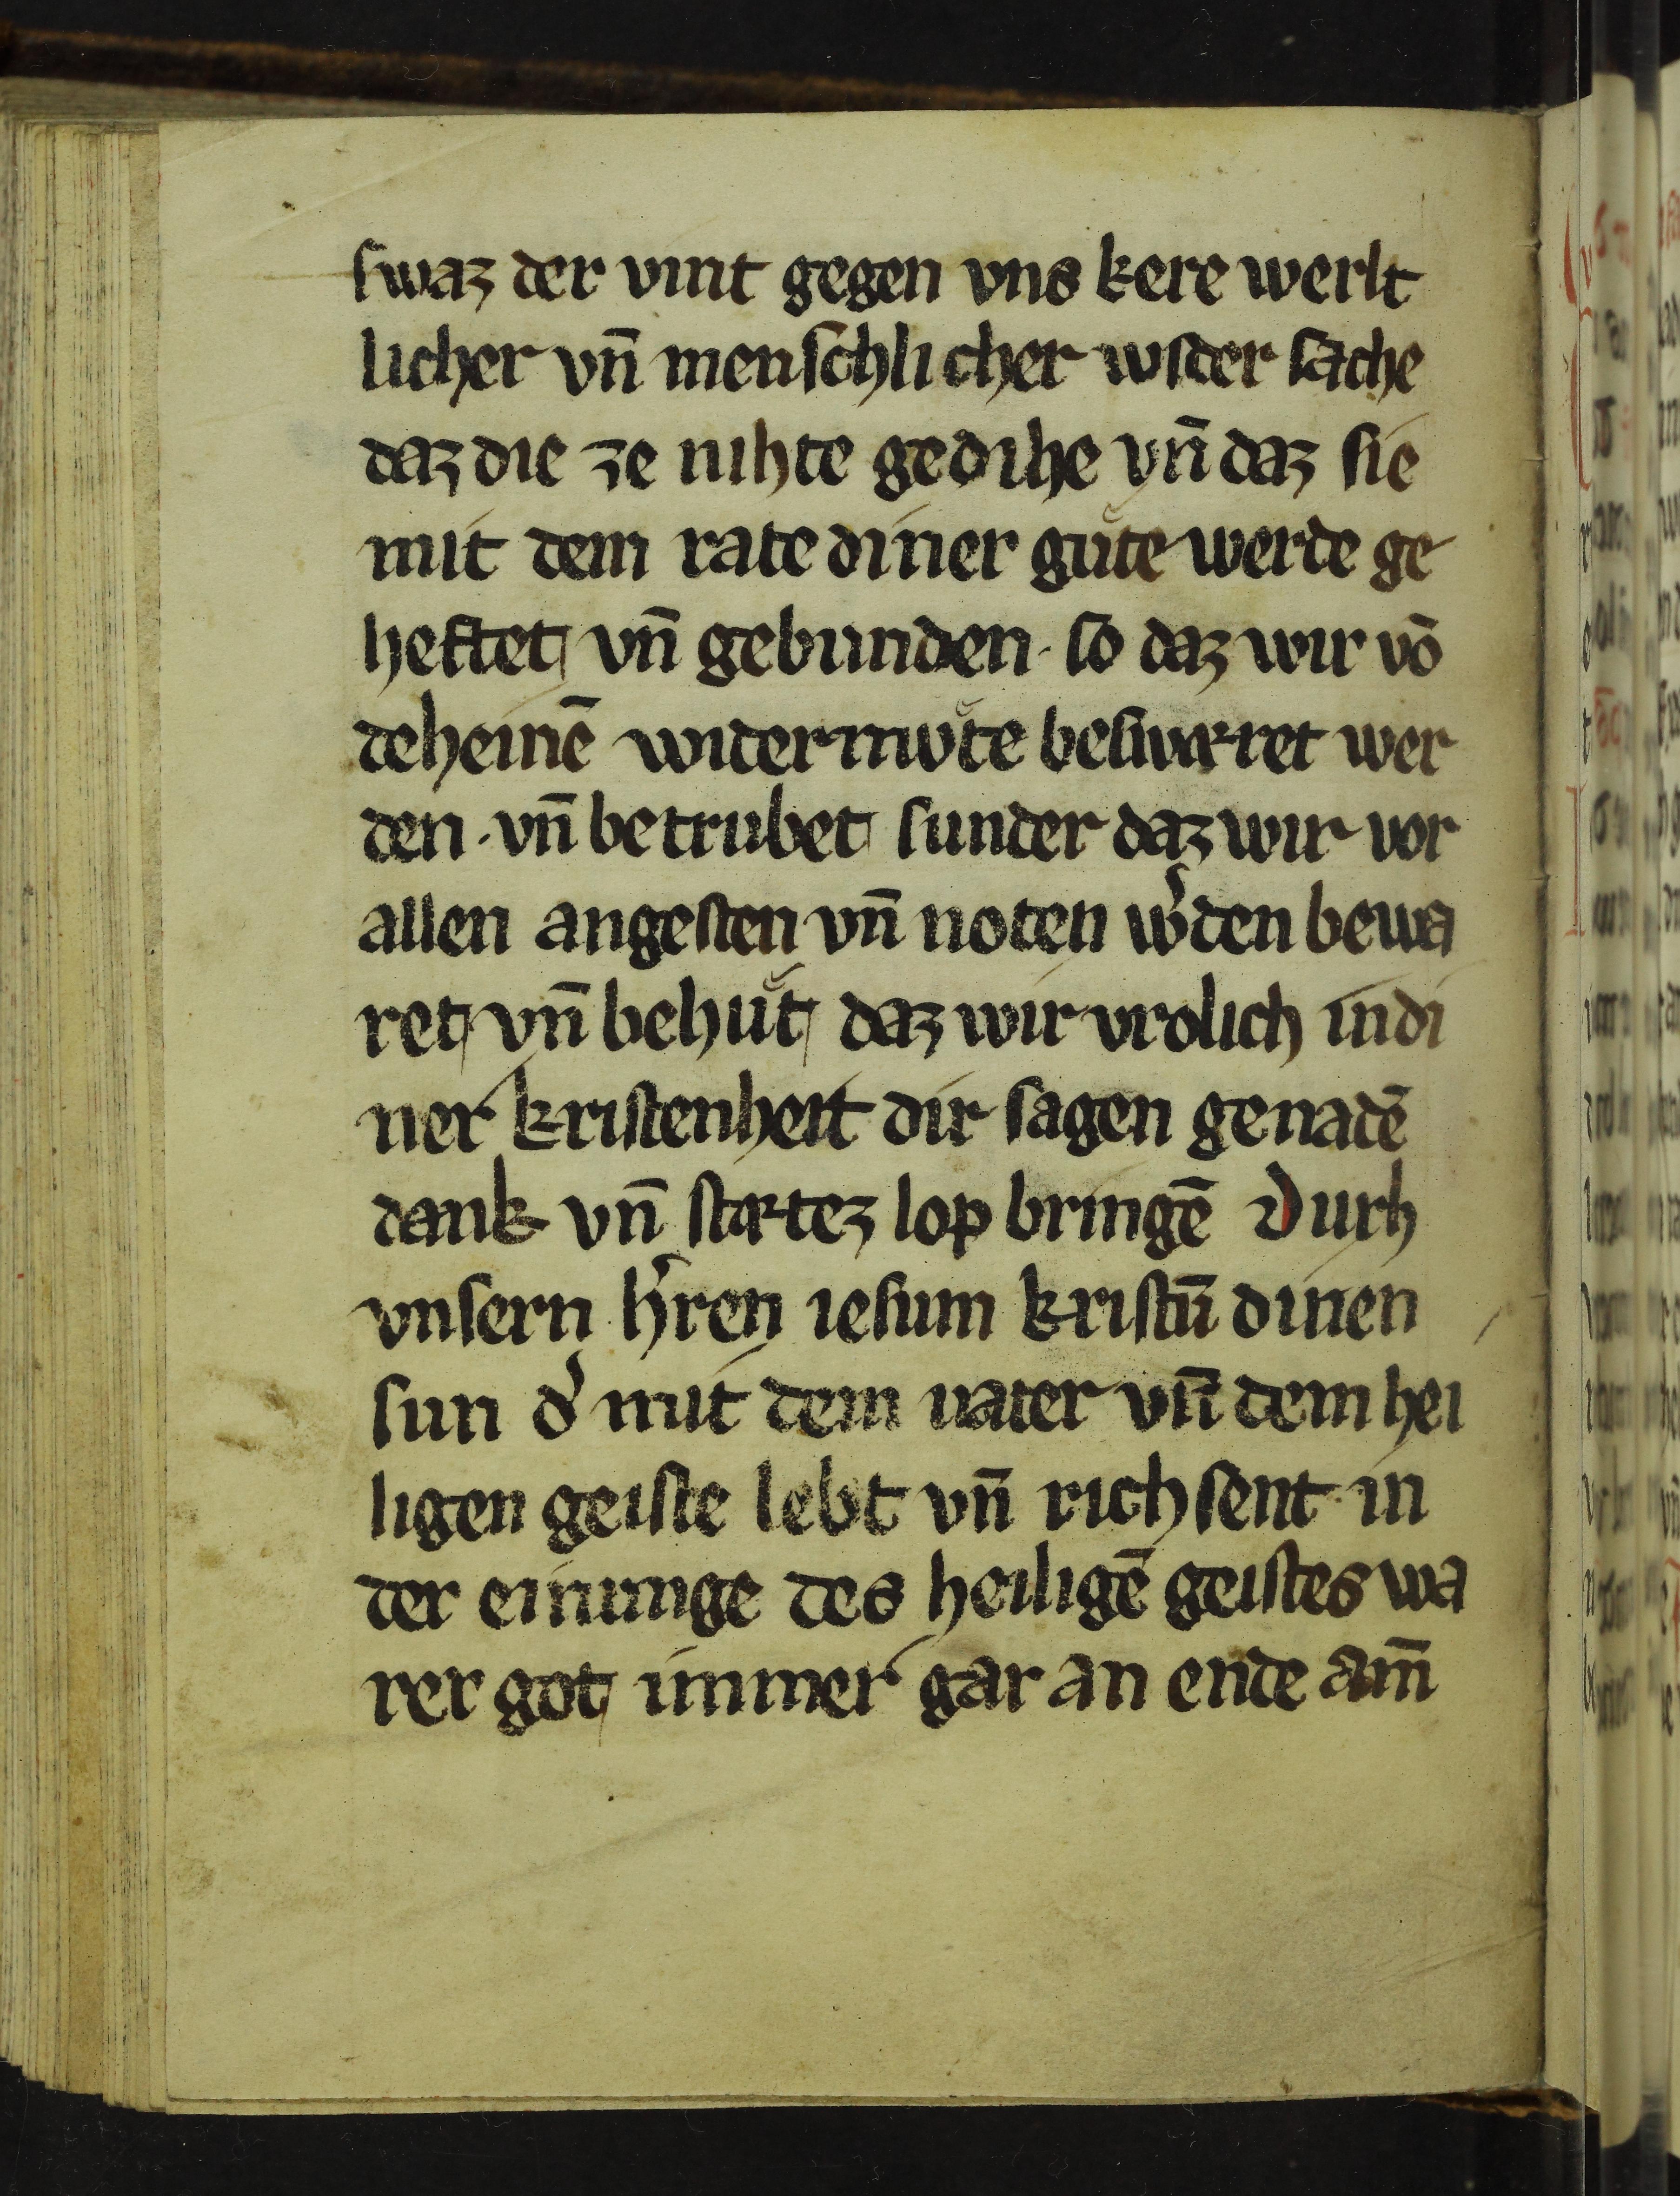 swaz der vint gegen vns kere werlt
licher vn̄ menschlicher wider sache
daz die ze nihte gedihe vn̄ daz sie
mit dem rate diner gůte werde ge
heftet vn̄ gebunden · so daz wir vō
deheinē wider mvͦte beswærret wer
den · vn̄ betrubet sunder daz wir vor
allen angesten vn̄ noten w͛den bewa
ret vn̄ behůt daz wir vrolich in di
ner kristenheit dir sagen genadē
dank vn̄ stætez lop bringē Durh
vnsern h͛ren iesum kristū dinen
sun d͛ mit dem vater vn̄ dem hei
ligen geiste lebt vn̄ richsent in
der einunge des heiligē geistes wa
rer got immer gar an ende am̄